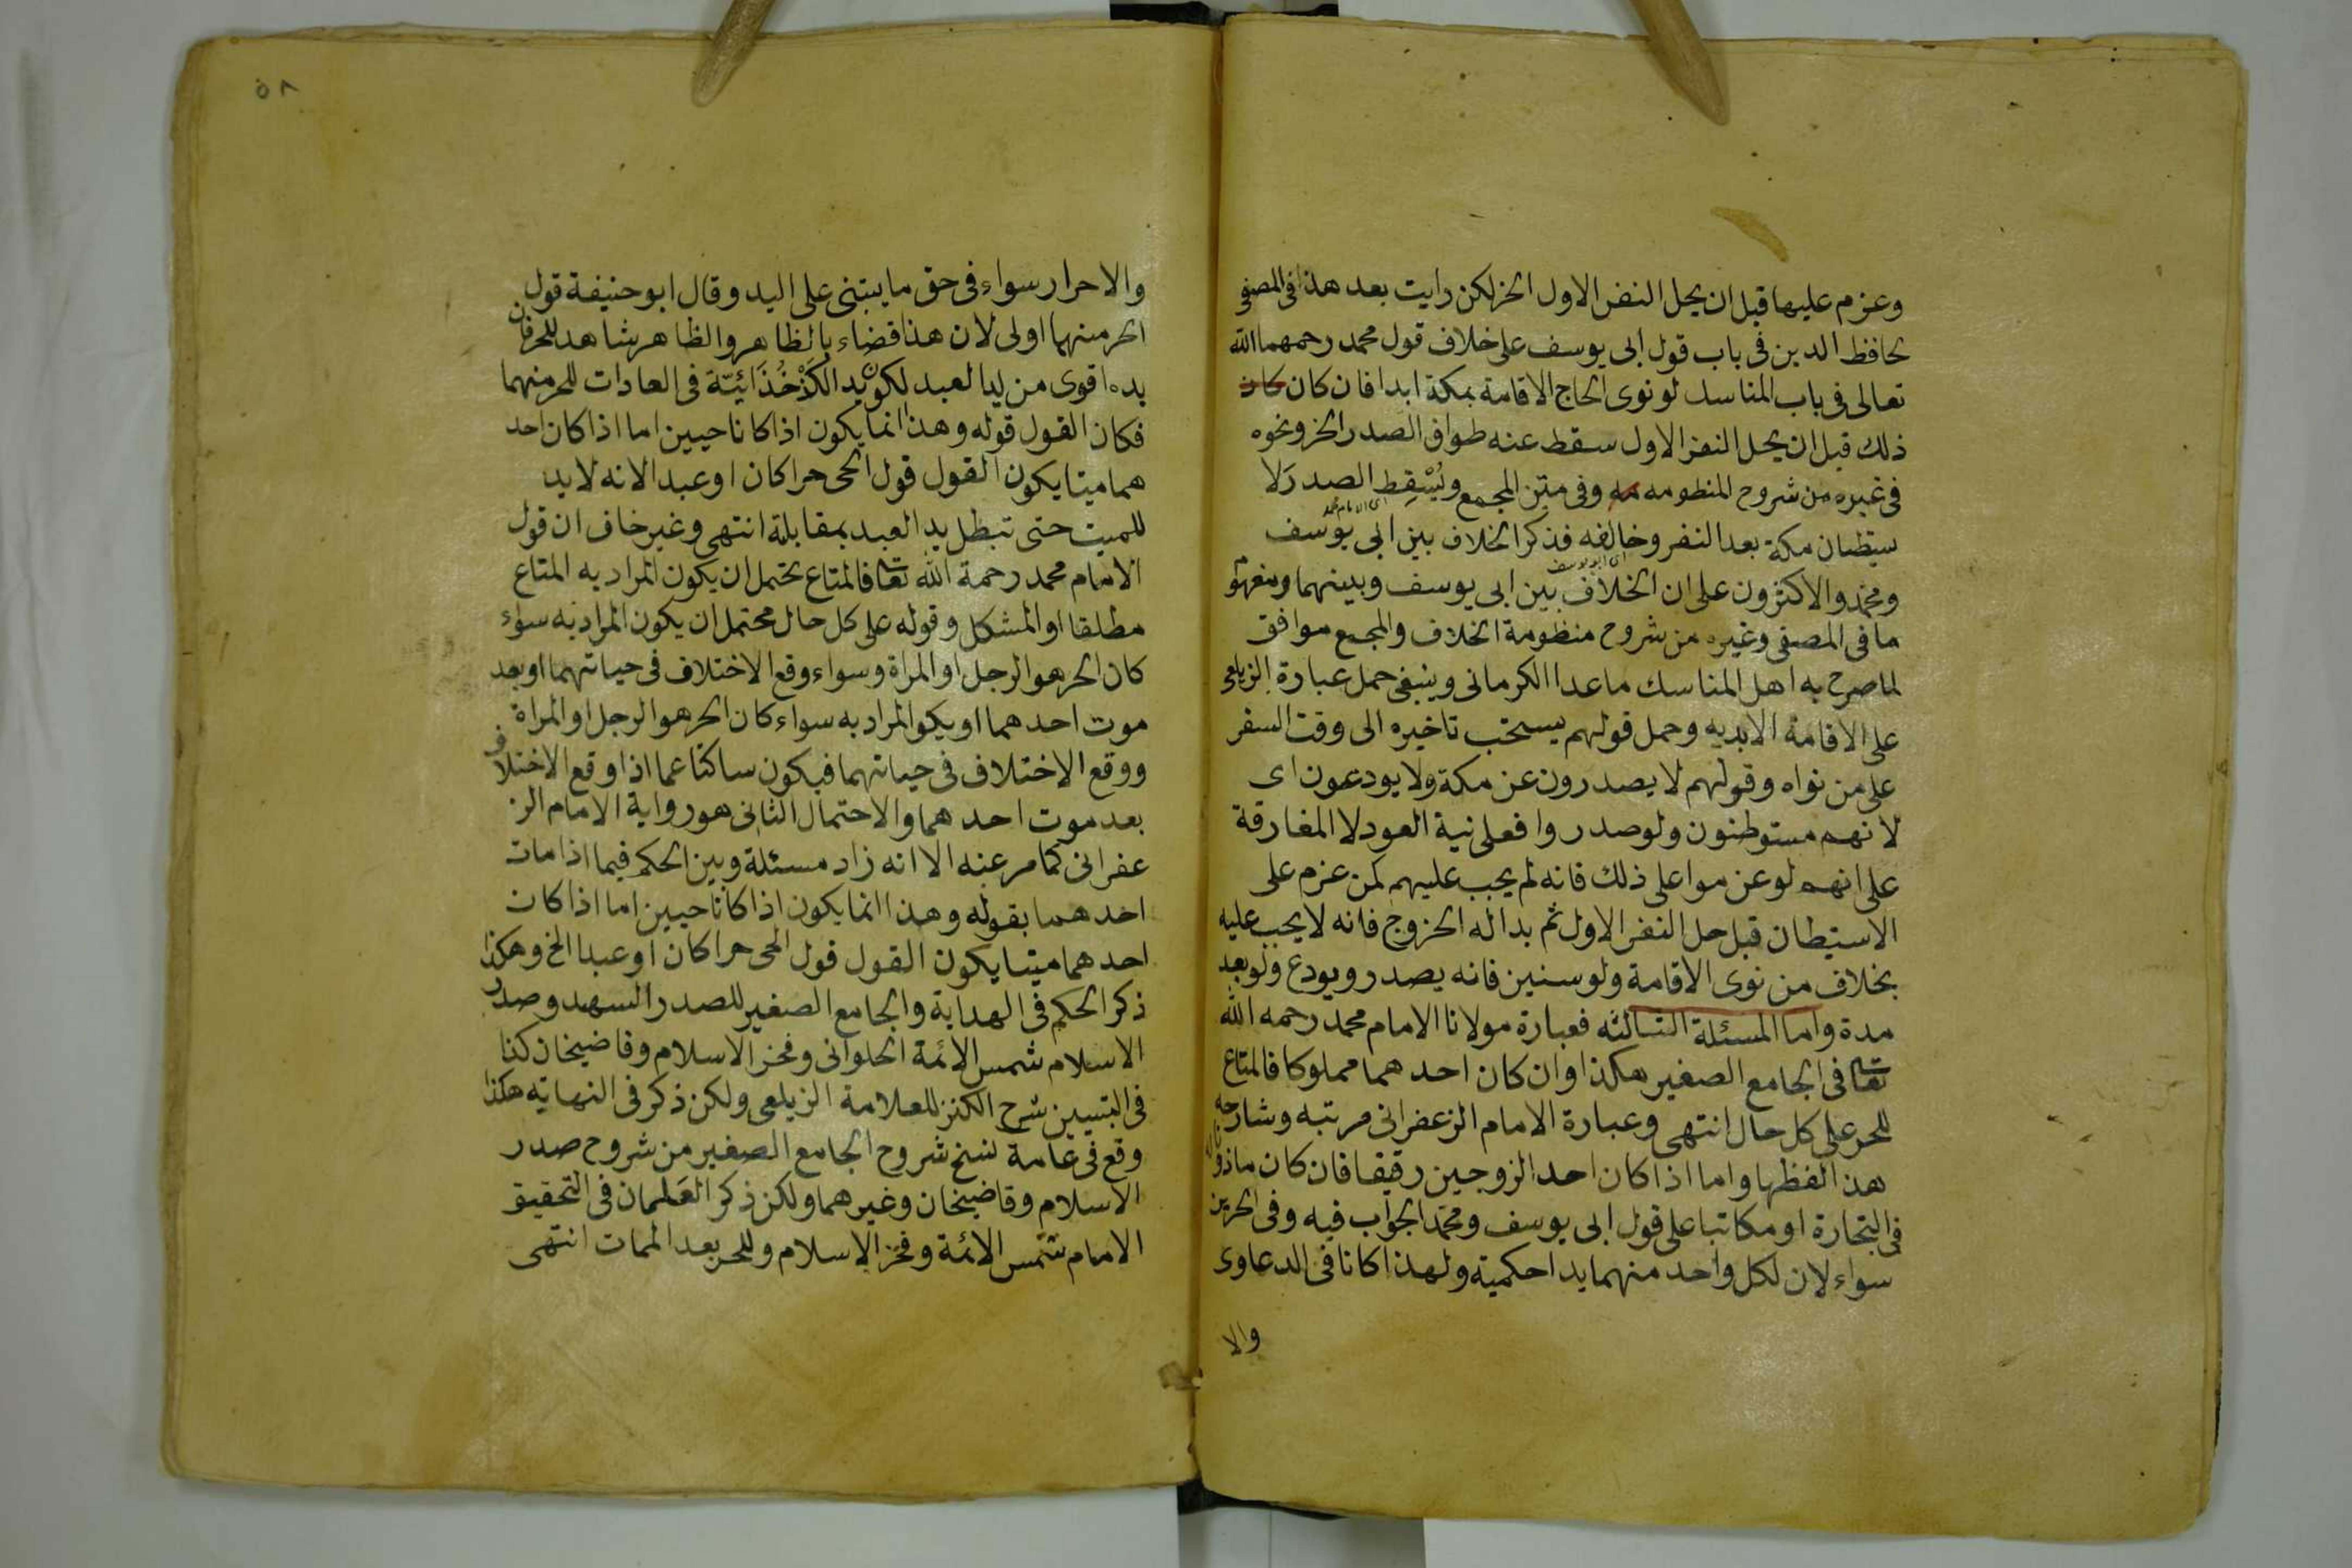 وعزم عليها قبل ان يحل النفر الاول الخ لكن رايت بعد هذا فى المصفى
لحافظ الدين فى باب قول ابى يوسف على خلاف قول محمد رحمهما الله
تعالى فى باب المناسك لو نوى الحاج الاقامة بمكة ابدا فان كان كان
ذلك قبل ان يحل النفر الاول سقط عنه طواف الصدر الخ ونحوه
فى غيره من شروح المنظومه وفى متن المجمع ويُسْقِط الصدرَ لا
اى الامام محمد
ستيطان مكة بعد النفر وخالفه فذكر الخلاف بين ابى يوسف
اى ابو يوسف
ومحمد والاكثرون على ان الخلاف بين ابى يوسف وبينهما
ما فى المصفى وغيره من شروح منظومة الخلاف والمجمع موافق
لما صرح به اهل المناسك ماعدا الكرمانى وينبغى حمل عبارة الزيلعى
على الاقامة الابديه وحمل قولهم يستحب تاخيره الى وقت السفر
على من نواه وقولهم لا يصدرون عن مكة ولا يودعون اى
لانهم مستوطنون ولو صدروا فعلى نية العود لا المفارقة
على انهم لو عزموا على ذلك فانه لم يجب عليهم كمن عزم على
الاستيطان قبل حل النفر الاول ثم بدا له الخروج فانه لا يجب عليه
بخلاف من نوى الاقامة ولو سنين فانه يصدر ويودع ولو بعد
مدة واما المسئلة الثالثه فعبارة مولانا الامام محمد رحمه الله
تعا فى الجامع الصغير هكذا وان كان احدهما مملوكا فالمتاع
للحر على كل حال انتهى وعبارة الامام الزعفرانى مرتبه وشارحه
هذا لفظها واما اذا كان احد الزوجين رقيقا فان كان ماذونا
فى التجارة او مكاتبا على قول ابى يوسف ومحمد الجواب فيه وفى الحرين
سواء لان لكل واحد منهما يدا حكمية ولهذا كانا فى الدعاوى
والا
٥٨
والاحرار سواء فى حق ما يبتنى على اليد وقال ابو حنيفة قول
الحر منهما اولى لان هذا قضاء بالظاهر والظاهر شاهد للحر فان
يده اقوى من يد العبد لكون يد الكَدْخُذَائِيّة فى العادات للحر منهما
فكان القول قوله وهذا انما يكون اذا كانا حيين اما اذا كان احد
هما ميتا يكون القول قول الحى حرا كان او عبدا لانه لا يد
للميت حتى تبطل يد العبد بمقابلة انتهى وغير خاف ان قول
الامام محمد رحمة الله تعا فالمتاع يحتمل ان يكون المراد به المتاع
مطلقا او المشكل وقوله على كل حال محتمل ان يكون المراد به سواء
كان الحر هو الرجل او المراة وسواء وقع الاختلاف فى حياتهما او بعد
موت احدهما او يكو المراد به سواء كان الحر هو الرجل او المراة
ووقع الاختلاف فى حياتهما فيكون ساكتا عما اذا وقع الاختلاف
بعد موت احدهما والاحتمال الثانى هو رواية الامام الز
عفرانى كما مر عنه الا انه زاد مسئلة وبين الحكم فيما اذا مات
احدهما بقوله وهذا انما يكون اذا كانا حيين اما اذا كان
احدهما ميتا يكون القول قول الحى حرا كان او عبدا الخ وهكذا
ذكر الحكم فى الهداية والجامع الصغير للصدر السهد وصدر
الاسلام شمس الائمة الحلوانى وفخر الاسلام وقاضيخان كذا
فى التبيين شرح الكنز للعلامة الزيلعى ولكن ذكر فى النهاية هكذا
وقع فى عامة نسخ شروح الجامع الصغير من شروح صدر
الاسلام وقاضيخان وغيرهما ولكن ذكر العَلمان فى التحقيق
الامام شمس الائمة وفخر الاسلام وللحر بعد الممات انتهى